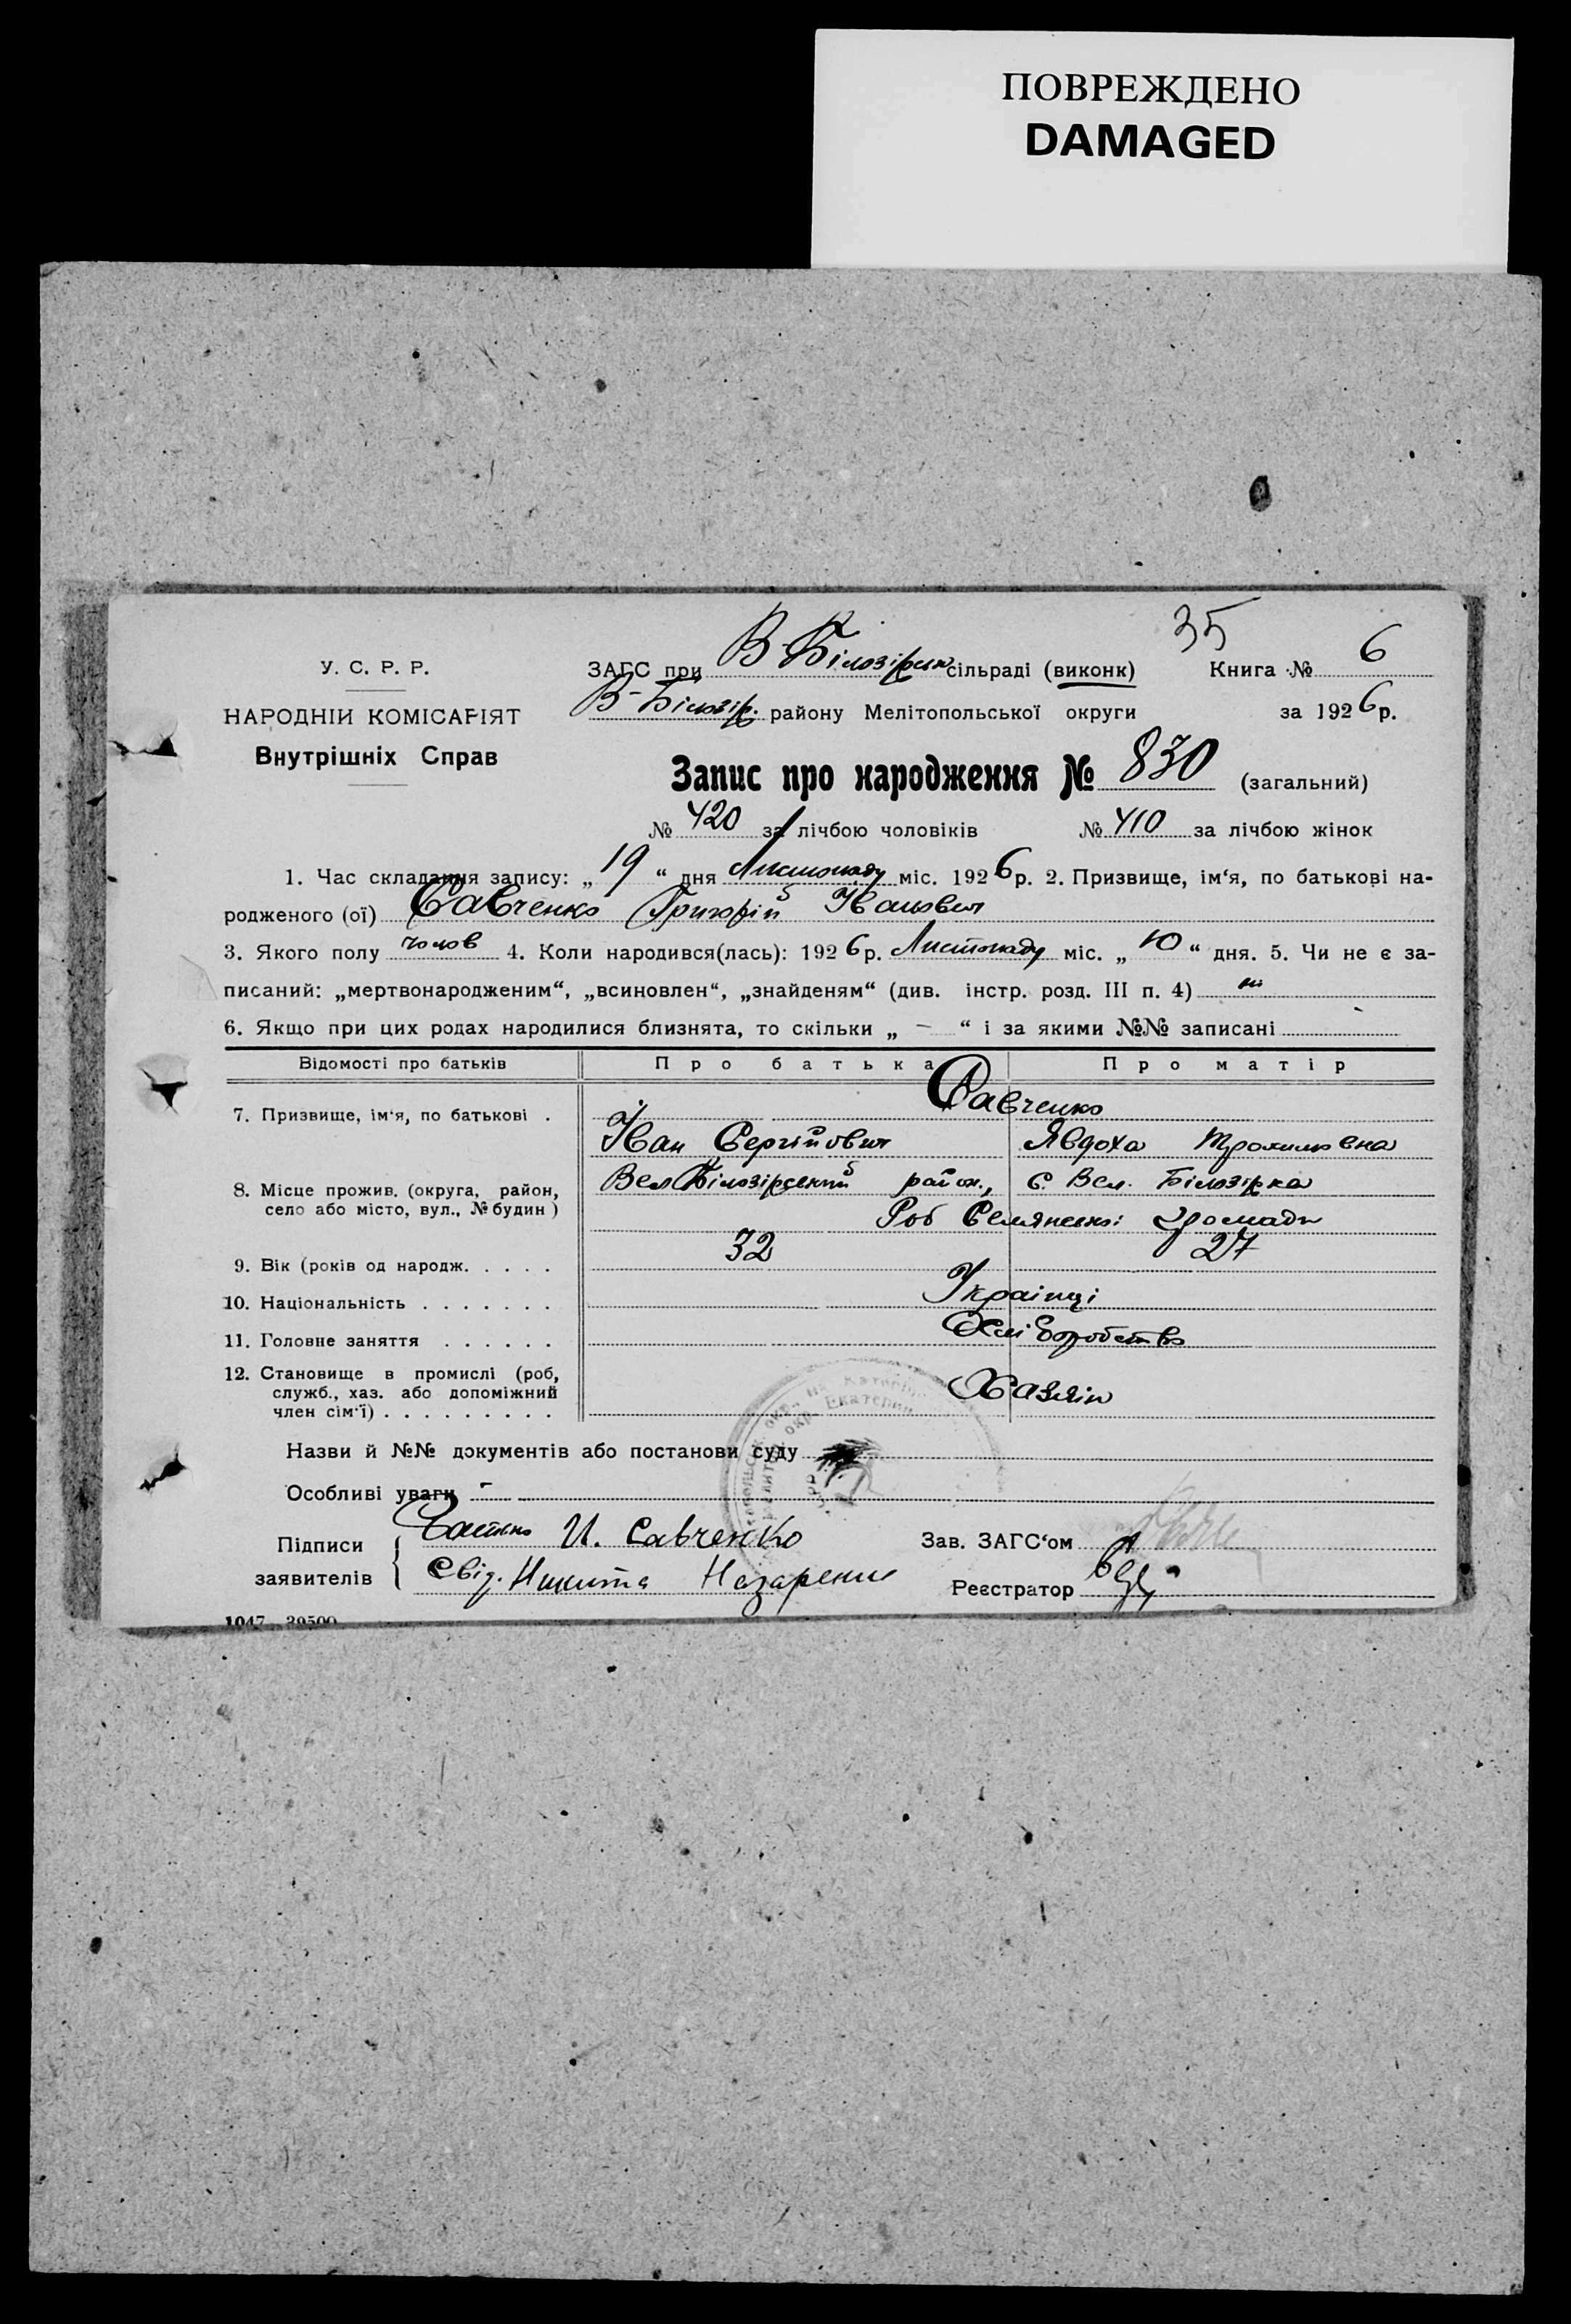 ПОВРЕЖДЕНО
DAMAGED
35
У. С. Р. Р.
ЗАГС при В-Білозірськ сільраді (виконк) Книга № 6
НАРОДНІЙ КОМІСАРІЯТ
В-Білозір. району Мелітопольської округи за 1926 р.
Внутрішніх Справ
Запис про народження № 830 (загальний)
№ 420 за лічбою чоловіків № 410 за лічбою жінок
1. Час складання запису: „19“ дня Листопаду міс. 1926 р. 2. Призвище, ім‘я, по батькові на-
родженого (ої) Савченко Григорій Іванович
3. Якого полу чолов 4. Коли народився(лась): 1926 р. Листопаду міс. „10“ дня. 5. Чи не є за-
писаний: „мертвонародженим“, „всиновлен“, „знайденям“ (див. інстр. розд. III п. 4) ні
6. Якщо при цих родах народилися близнята, то скільки „ – “ і за якими №№ записані
Відомості про батьків Про батька Про матір
7. Призвище, ім‘я, по батькові . Савченко
Іван Сергійович Явдоха Трохимовна
8. Місце прожив. (округа, район, Вел Білозірський район., С. Вел. Білозірка
село або місто, вул., № будин) Роб Селянської громади
9. Вік (років од народж. . . . . 32 27
10. Національність . . . . . . . Українці
11. Головне заняття . . . . . . Хліборобство
12. Становище в промислі (роб,
служб., хаз. або допоміжний Хазяїн
член сім‘ї) . . . . . . . . .
Назви й №№ документів або постанови суду
Особливі уваги –
Підписи Батько И. Савченко Зав. ЗАГС‘ом
заявителів Свід. Никита Назаренко Реєстратор
1047 39500